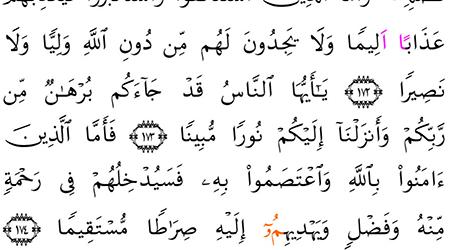 عَذَابًا اَلِيمًا وَلَا يَجِدُونَ لَهُم مِّن دُونِ اَ۬للَّهِ وَلِيًّا وَلَا
نَصِيرًا ١٧٢ يَٰٓأَيُّهَا اَ۬لنَّاسُ قَدْ جَآءَكُم بُرْهَٰنٌ مِّن
رَّبِّكُمْ وَأَنزَلْنَآ إِلَيْكُمْ نُورًا مُّبِينًا ١٧٣ فَأَمَّا اَ۬لَّذِينَ
ءَامَنُواْ بِاللَّهِ وَاعْتَصَمُواْ بِهِۦ فَسَيُدْخِلُهُمْ فِى رَحْمَةٍ
مِّنْهُ وَفَضْلٍ وَيَهْدِيهِمُۥٓ إِلَيْهِ صِرَٰطًا مُّسْتَقِيمًا ١٧٤